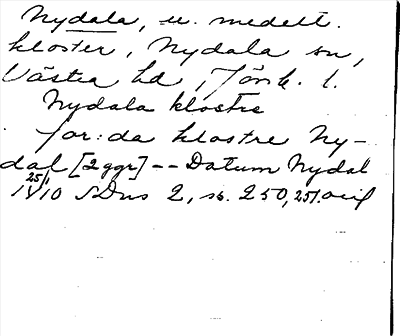 Nydala, u. medelt.
kloster, Nydala sn,
Västra hd, Jönk. l.
Nydala klostre
for:da klostre Ny-
dal [2 ggr] -- Datum Nydal
25/1 1410 SDns 2, s. 250, 251. orig